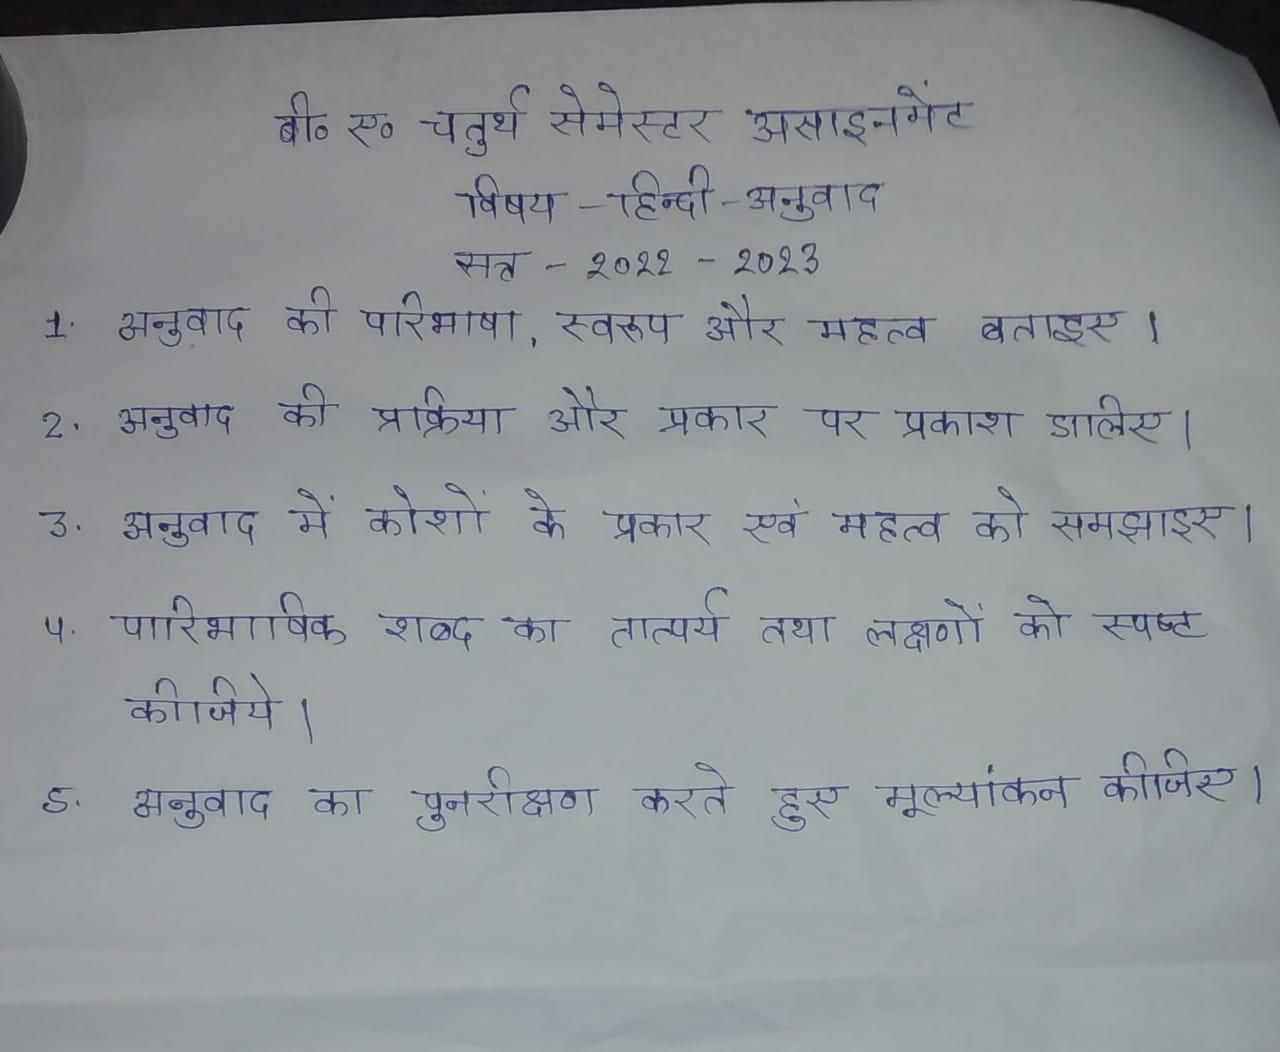 बी० ए० चतुर्थ सेमेस्टर असाइनमेंट
विषय - हिन्दी - अनुवाद
सत्र - 2022 - 2023
1. अनुवाद की परिभाषा, स्वरूप और महत्व बताइए।
2. अनुवाद की प्रक्रिया और प्रकार पर प्रकाश डालिए।
3. अनुवाद में कोशों के प्रकार एवं महत्व को समझाइए।
४. पारिभाषिक शब्द का तात्पर्य तथा लक्षणों को स्पष्ट
कीजिये।
5. अनुवाद का पुनरीक्षण करते हुए मूल्यांकन कीजिए।